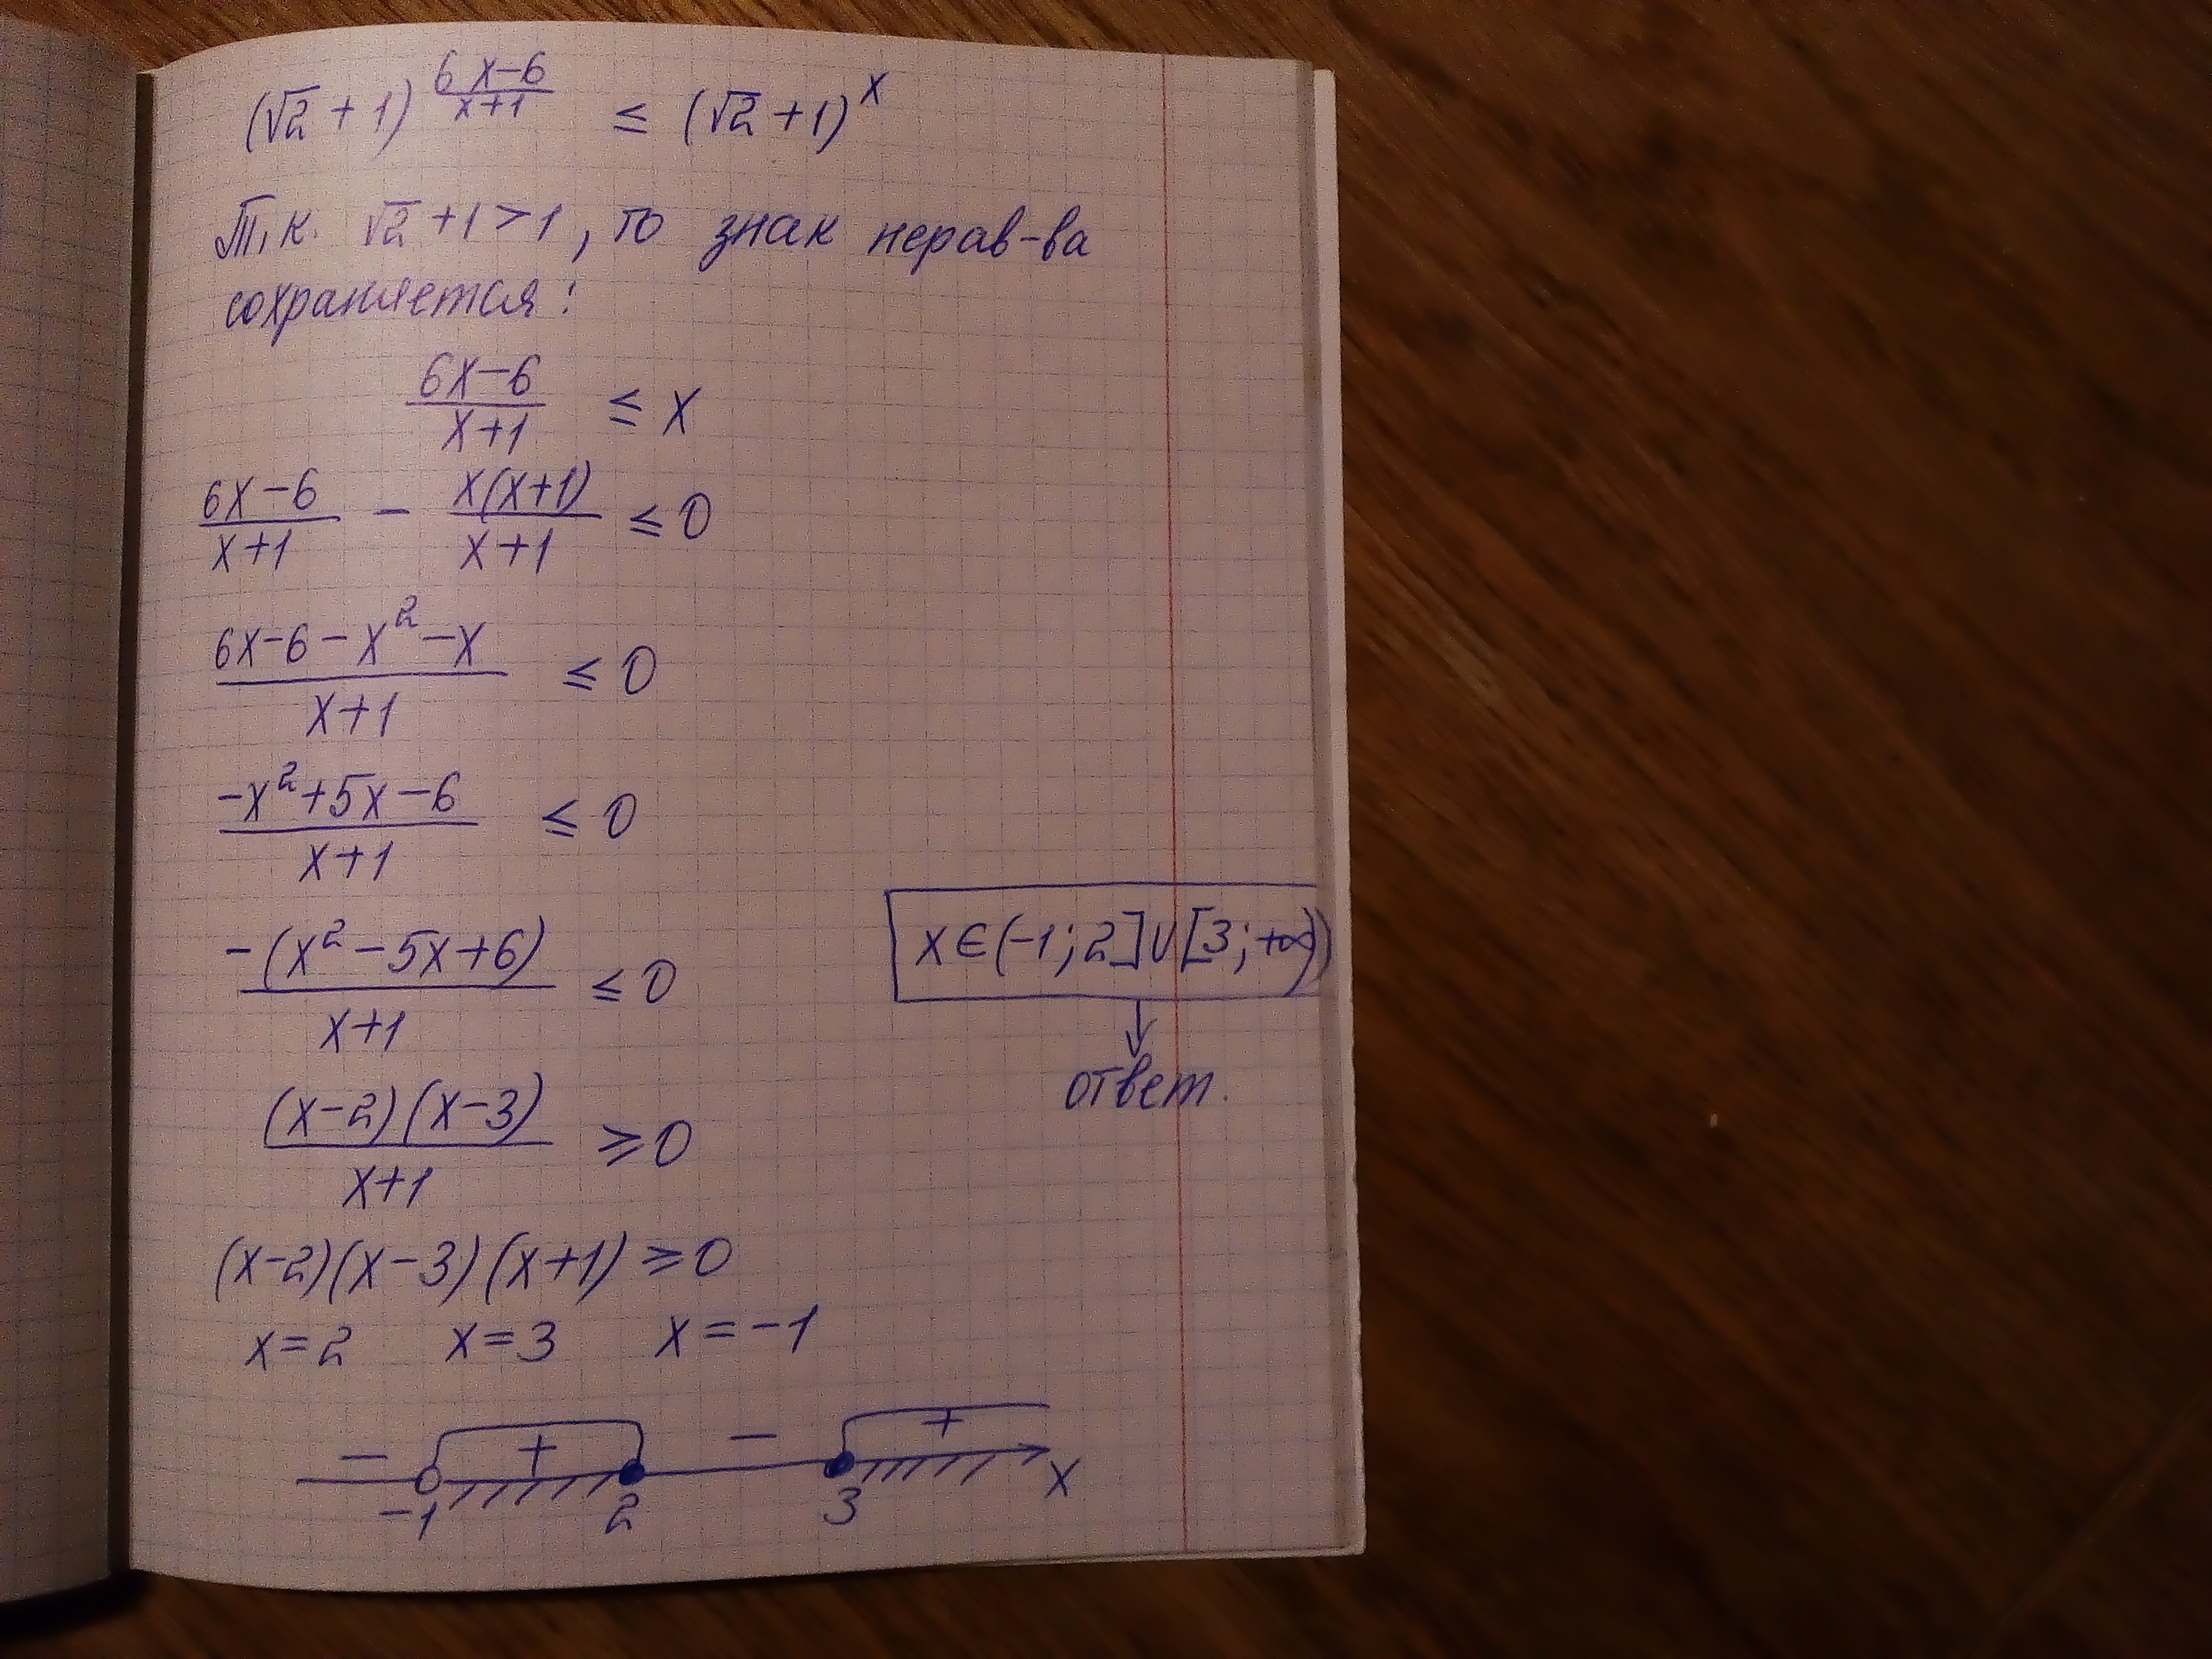 (√2 + 1)^((6x−6)/(x+1)) ≤ (√2 + 1)^x
Т.к. √2 + 1 > 1, то знак нерав-ва
сохраняется:
(6x−6)/(x+1) ≤ x
(6x−6)/(x+1) − x(x+1)/(x+1) ≤ 0
(6x−6−x²−x)/(x+1) ≤ 0
(−x²+5x−6)/(x+1) ≤ 0
−(x²−5x+6)/(x+1) ≤ 0
(x−2)(x−3)/(x+1) ≥ 0
(x−2)(x−3)(x+1) ≥ 0
x=2 x=3 x=−1
− + − +
−1 2 3 x
x∈(−1;2]∪[3;+∞)
ответ.